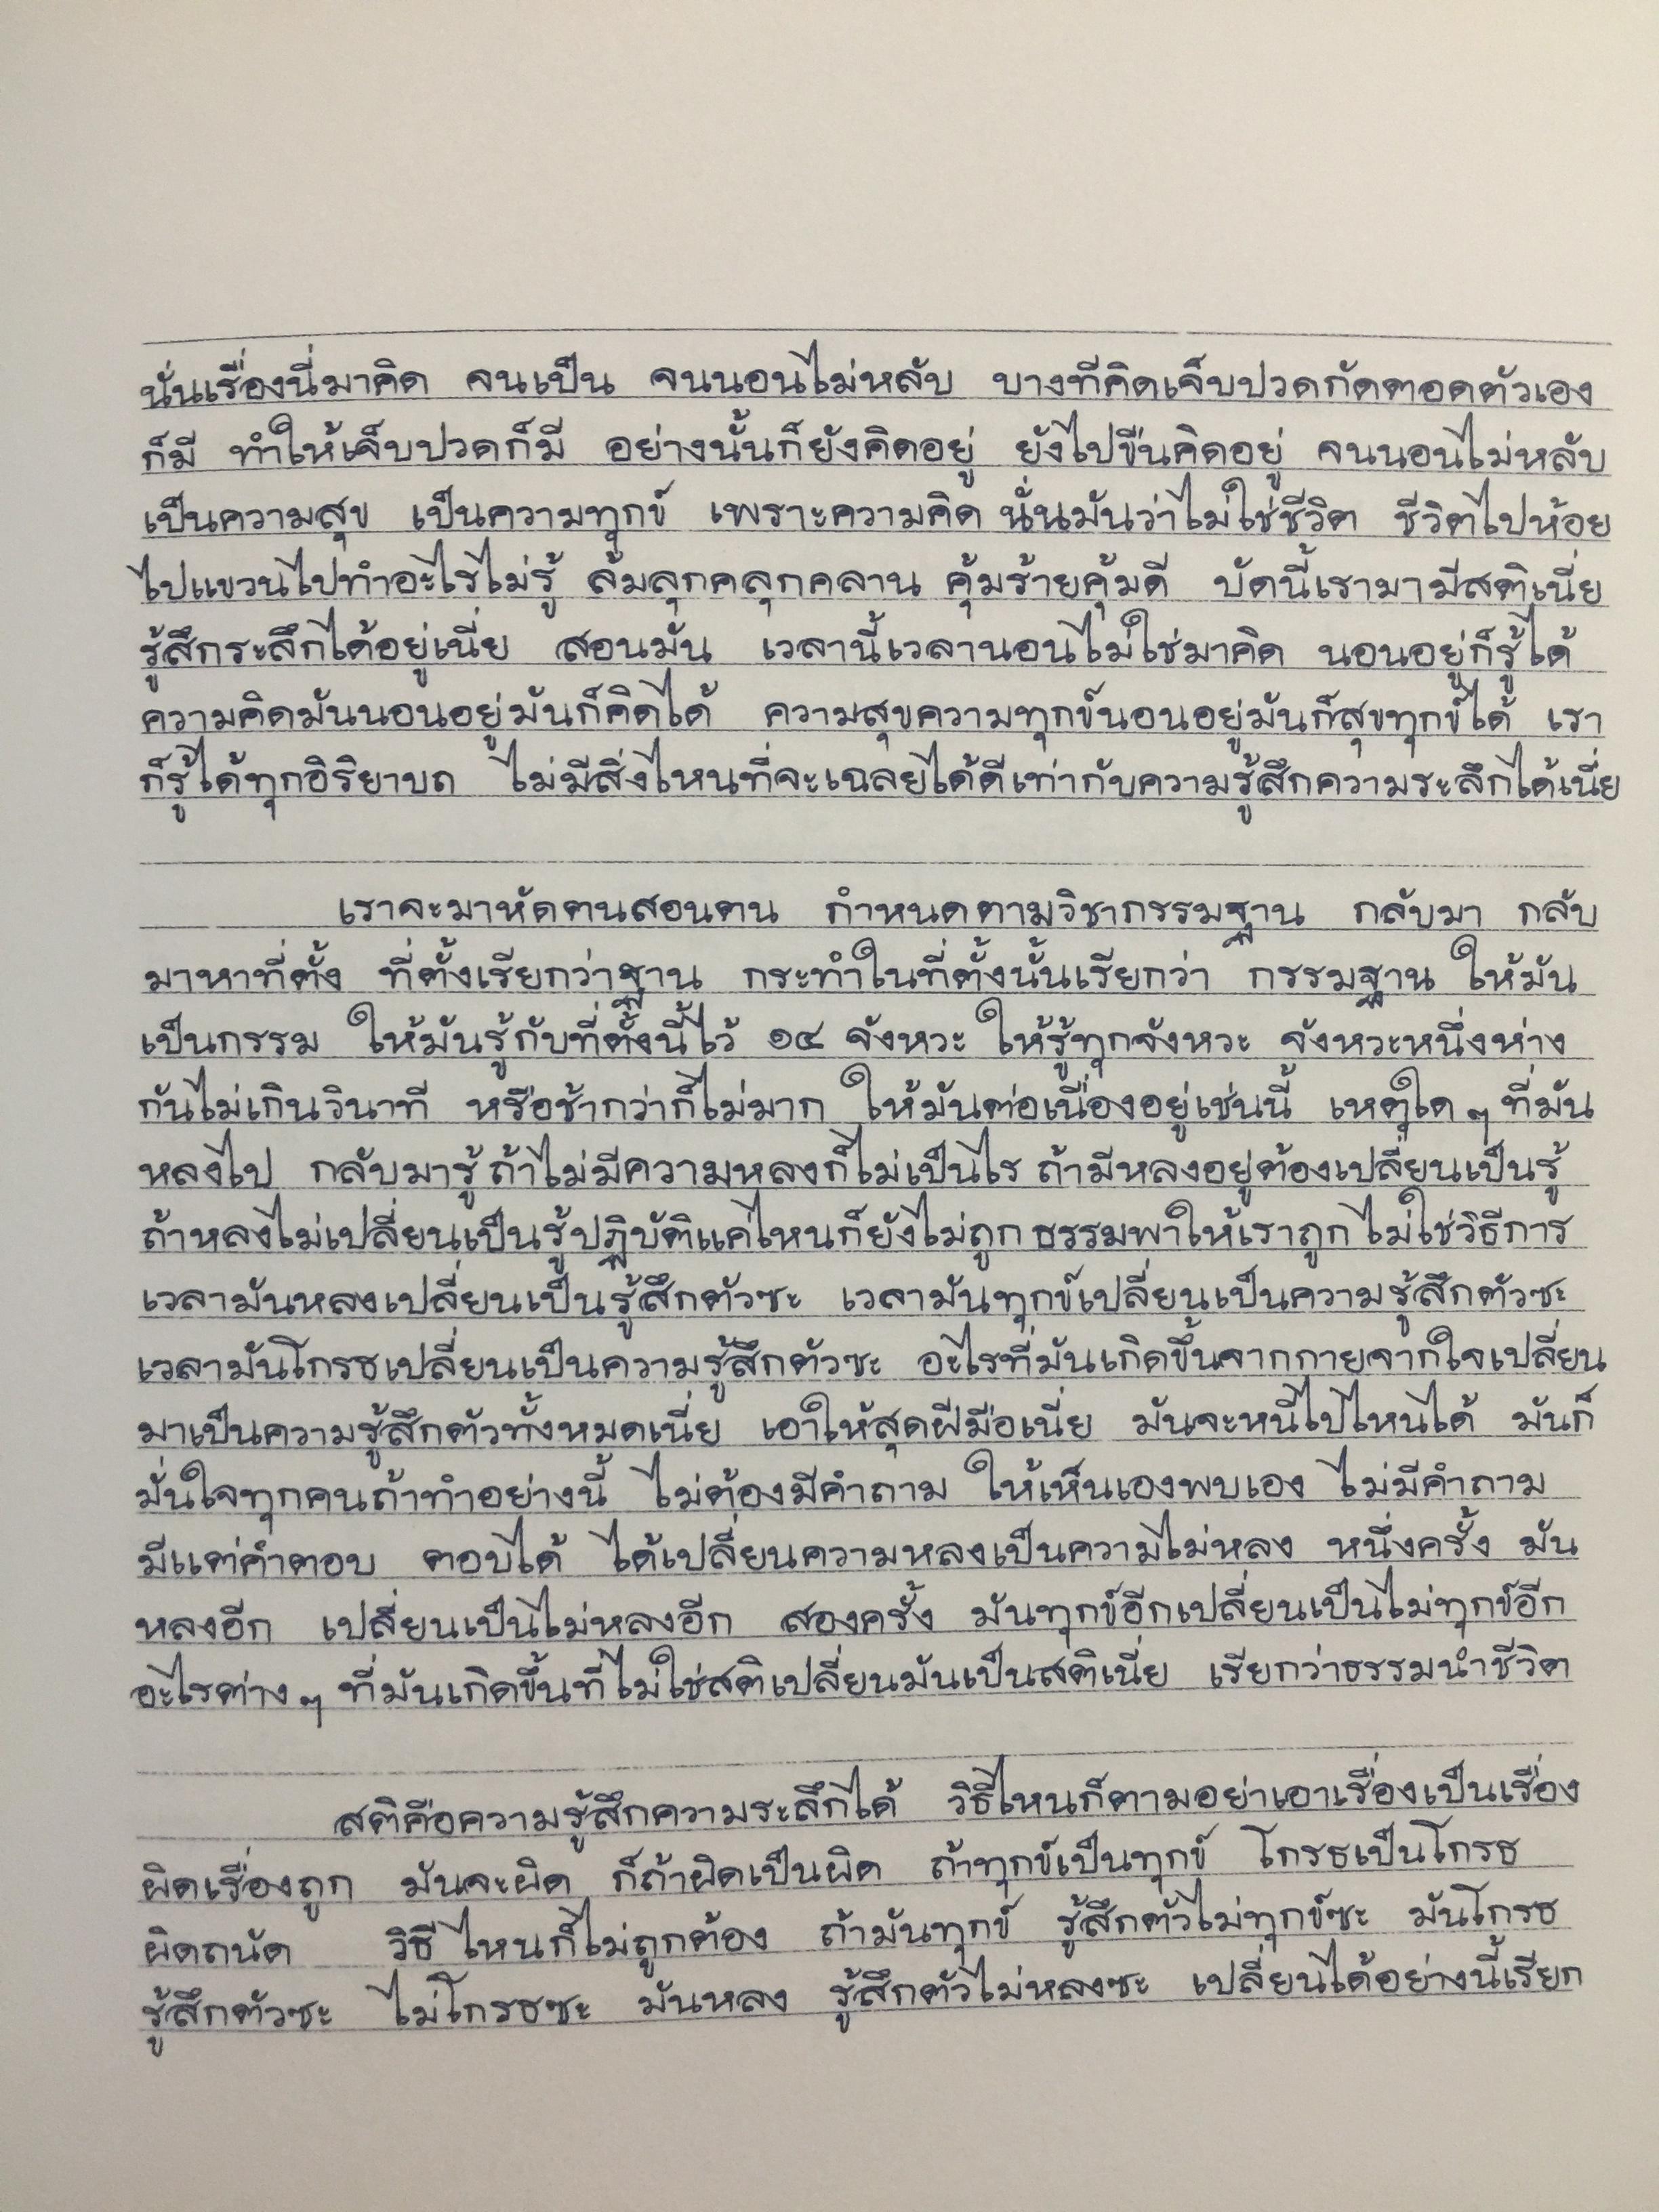 นั่นเรื่องนี่มาคิด จนเป็น จนนอนไม่หลับ บางทีคิดเจ็บปวดกัดตอดตัวเอง
ก็มี ทำให้เจ็บปวดก็มี อย่างนั้นก็ยังคิดอยู่ ยังไปขืนคิดอยู่ จนนอนไม่หลับ
เป็นความสุข เป็นความทุกข์ เพราะความคิด นั่นมันว่าไม่ใช่ชีวิต ชีวิตไปห้อย
ไปแขวนไปทำอะไรไม่รู้ ล้มลุกคลุกคลาน คุ้มร้ายคุ้มดี บัดนี้เรามามีสติเนี่ย
รู้สึกระลึกได้อยู่เนี่ย สอนมัน เวลานี้เวลานอนไม่ใช่มาคิด นอนอยู่ก็รู้ได้
ความคิดมันนอนอยู่มันก็คิดได้ ความสุขความทุกข์นอนอยู่มันก็สุขทุกข์ได้ เรา
ก็รู้ได้ทุกอิริยาบถ ไม่มีสิ่งไหนที่จะเฉลยได้ดีเท่ากับความรู้สึกความระลึกได้เนี่ย
เราจะมาหัดตนสอนตน กำหนดตามวิชากรรมฐาน กลับมา กลับ
มาหาที่ตั้ง ที่ตั้งเรียกว่าฐาน กระทำในที่ตั้งนั้นเรียกว่า กรรมฐาน ให้มัน
เป็นกรรม ให้มันรู้กับที่ตั้งนี้ไว้ ๑๔ จังหวะ ให้รู้ทุกจังหวะ จังหวะหนึ่งห่าง
กันไม่เกินวินาที หรือช้ากว่าก็ไม่มาก ให้มันต่อเนื่องอยู่เช่นนี้ เหตุใด ๆ ที่มัน
หลงไป กลับมารู้ ถ้าไม่มีความหลงก็ไม่เป็นไร ถ้ามีหลงอยู่ต้องเปลี่ยนเป็นรู้
ถ้าหลงไม่เปลี่ยนเป็นรู้ปฏิบัติแค่ไหนก็ยังไม่ถูก ธรรมพาให้เราถูก ไม่ใช่วิธีการ
เวลามันหลงเปลี่ยนเป็นรู้สึกตัวซะ เวลามันทุกข์เปลี่ยนเป็นความรู้สึกตัวซะ
เวลามันโกรธเปลี่ยนเป็นความรู้สึกตัวซะ อะไรที่มันเกิดขึ้นจากกายจากใจเปลี่ยน
มาเป็นความรู้สึกตัวทั้งหมดเนี่ย เอาให้สุดฝีมือเนี่ย มันจะหนีไปไหนได้ มันก็
มั่นใจทุกคนถ้าทำอย่างนี้ ไม่ต้องมีคำถาม ให้เห็นเองพบเอง ไม่มีคำถาม
มีแต่คำตอบ ตอบได้ ได้เปลี่ยนความหลงเป็นความไม่หลง หนึ่งครั้ง มัน
หลงอีก เปลี่ยนเป็นไม่หลงอีก สองครั้ง มันทุกข์อีกเปลี่ยนเป็นไม่ทุกข์อีก
อะไรต่าง ๆ ที่มันเกิดขึ้นที่ไม่ใช่สติเปลี่ยนมันเป็นสติเนี่ย เรียกว่าธรรมนำชีวิต
สติคือความรู้สึกความระลึกได้ วิธีไหนก็ตามอย่าเอาเรื่องเป็นเรื่อง
ผิดเรื่องถูก มันจะผิด ก็ถ้าผิดเป็นผิด ถ้าทุกข์เป็นทุกข์ โกรธเป็นโกรธ
ผิดถนัด วิธีไหนก็ไม่ถูกต้อง ถ้ามันทุกข์ รู้สึกตัวไม่ทุกข์ซะ มันโกรธ
รู้สึกตัวซะ ไม่โกรธซะ มันหลง รู้สึกตัวไม่หลงซะ เปลี่ยนได้อย่างนี้เรียก